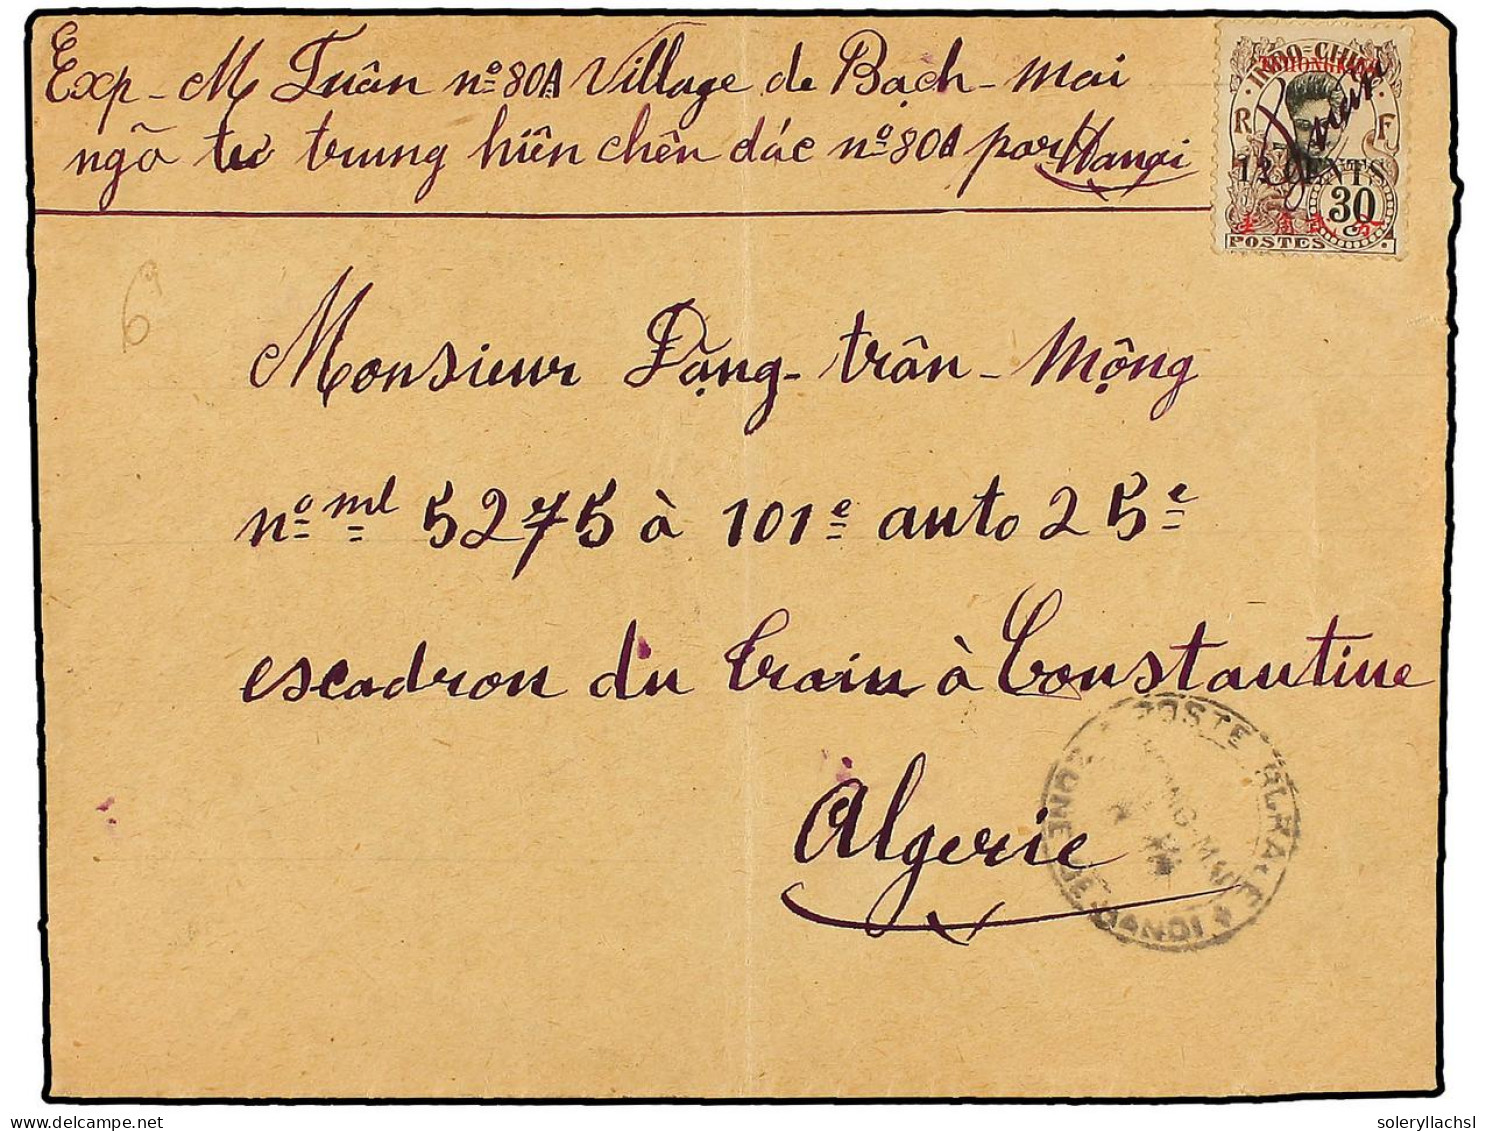 Exp - M Tuân nº 80A Village de Bạch-mai
ngõ tư trung hiên chên dác nº 80A par Hanoi
INDO-CHINE
R F
12 CENTS
30
POSTES
6
Monsieur Dạng-trân-Mộng
nº ml 5275 à 101e auto 25e
escadron du train à Constantine
Algérie
POSTE RURALE
ZONE DE HANOI
soleryllachsl